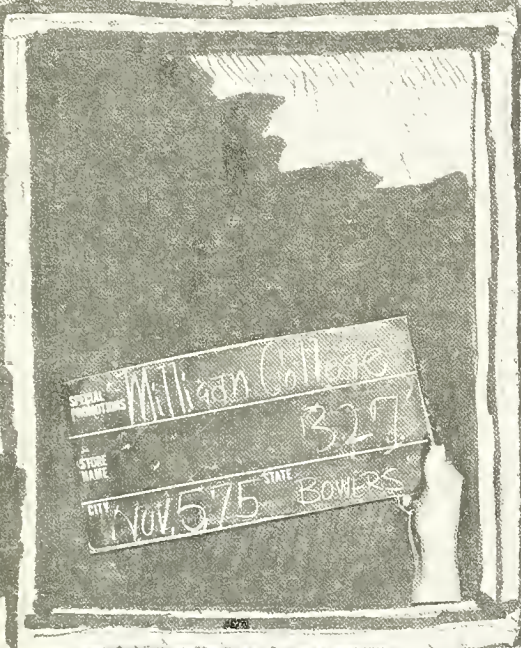 SPECIAL PROMOTIONS Milligan College
STORE NAME 327
CITY NOV. 5 75 STATE BOWERS